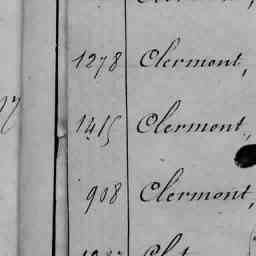 1278 Clermont,
1415 Clermont,
908 Clermont,